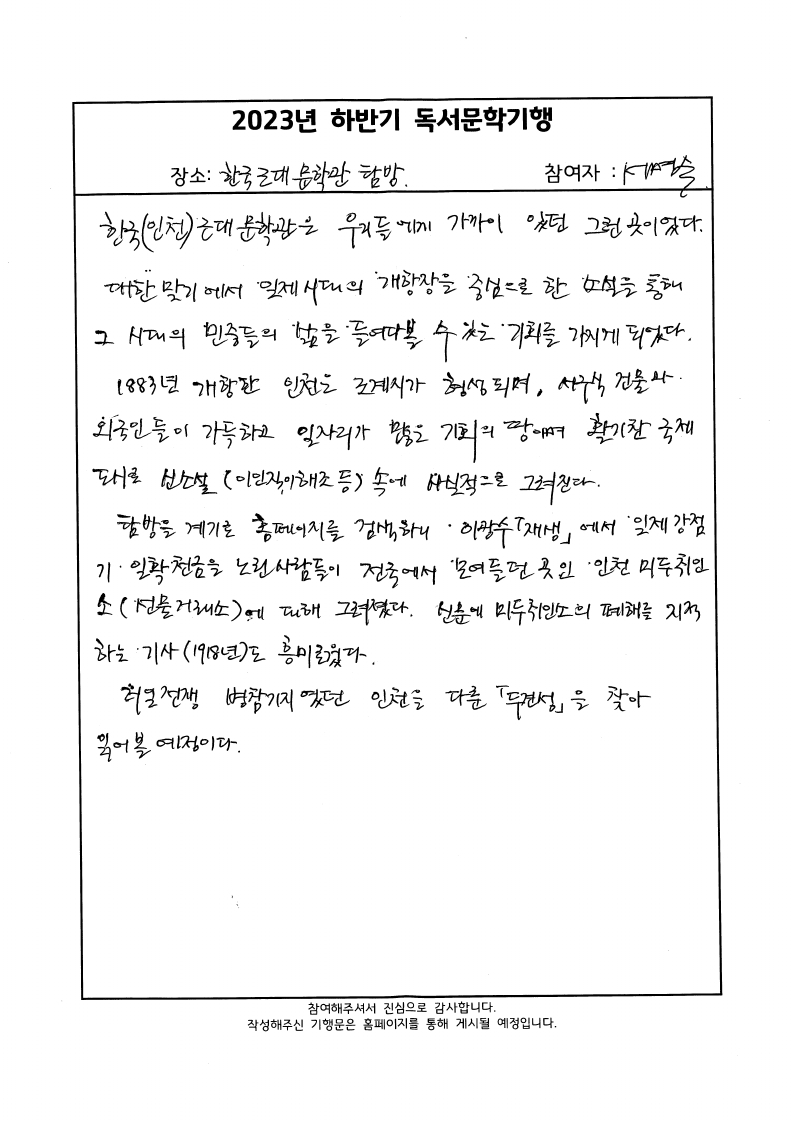 2023년 하반기 독서문학기행
장소: 한국근대문학관 탐방. 참여자 :
한국(인천)근대문학관은 우리들에게 가까이 있던 그런 곳이었다.
대한 말기에서 일제시대의 개항장을 중심으로 한 소설을 통해
그 시대의 민중들의 삶을 들여다볼 수 있는 기회를 가지게 되었다.
1883년 개항한 인천은 조계지가 형성되며, 서구식 건물과
외국인들이 가득하고 일자리가 많은 기회의 땅이며 활기찬 국제
도시로 신소설 (이인직,이해조 등) 속에 사실적으로 그려진다.
탐방을 계기로 홈페이지를 검색하니 이광수「재생」에서 일제강점
기 일확천금을 노린 사람들이 전국에서 모여들던 곳인 인천 미두취인
소(선물거래소)에 대해 그려졌다. 신문에 미두취인소의 폐해를 지적
하는 기사(1918년)도 흥미로웠다.
러일전쟁 병참기지였던 인천을 다룬「두견성」을 찾아
읽어볼 예정이다.
참여해주셔서 진심으로 감사합니다.
작성해주신 기행문은 홈페이지를 통해 게시될 예정입니다.